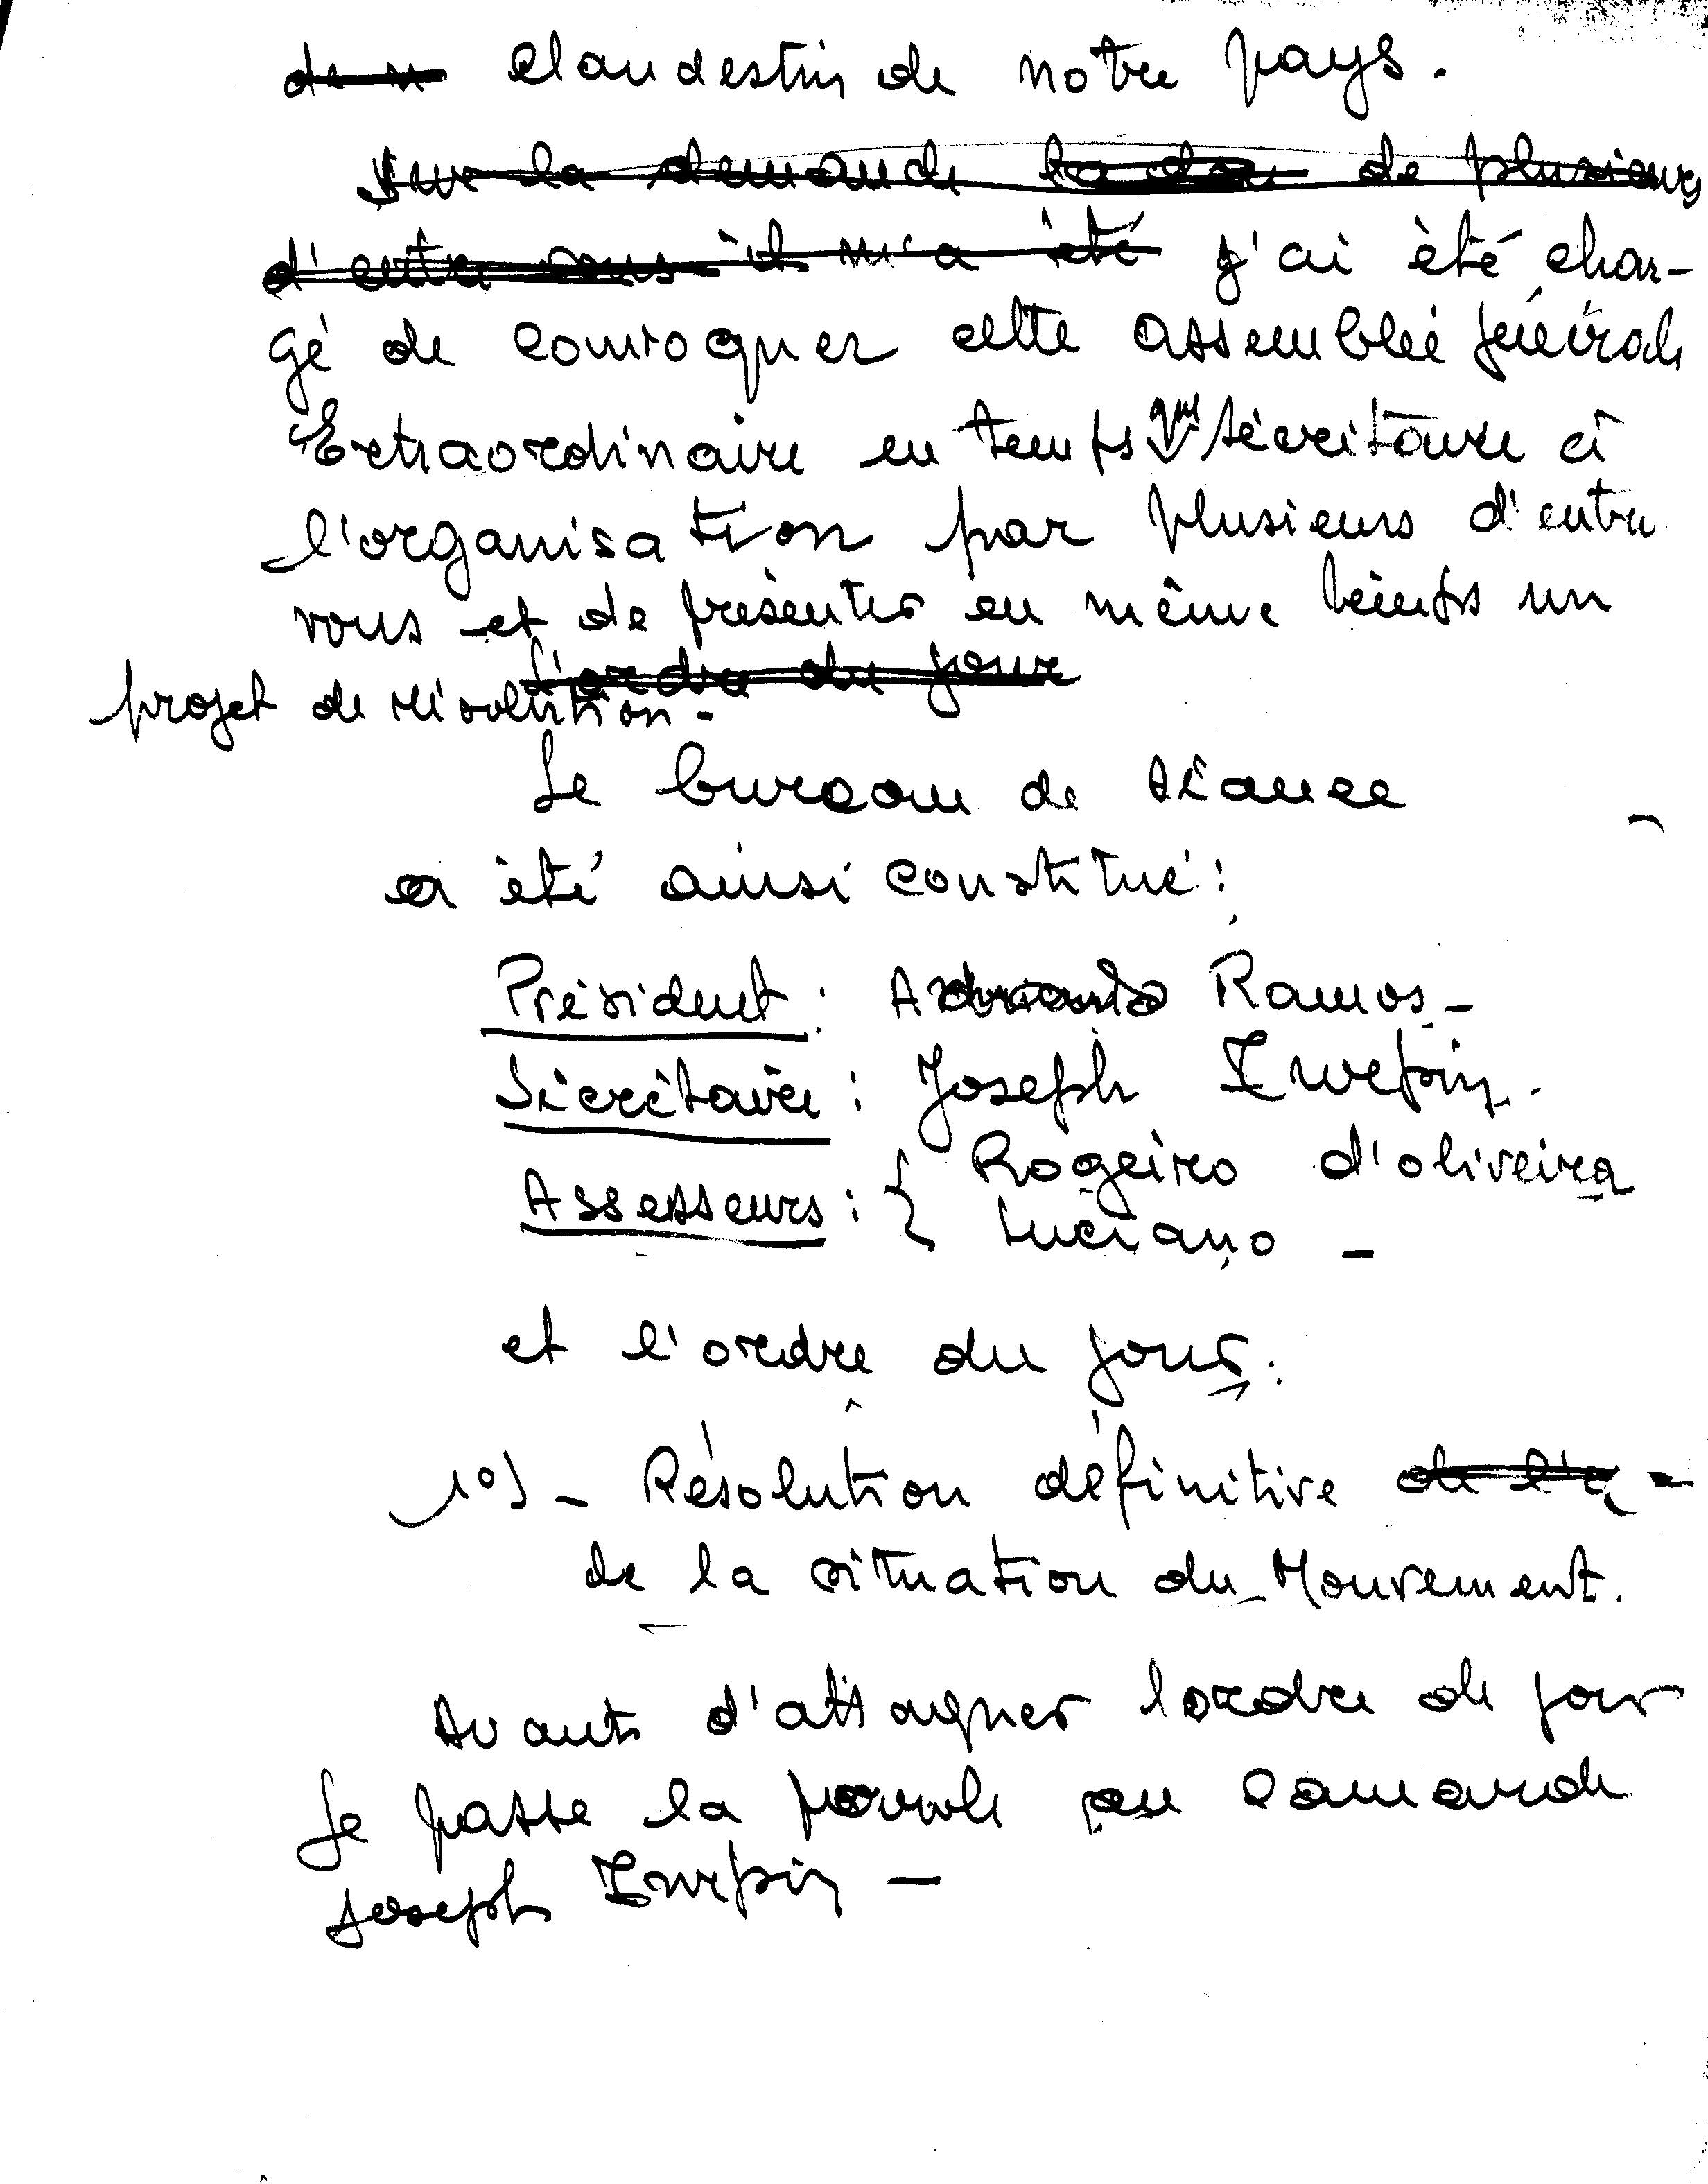 de n clandestin de notre pays.
Sur la demande de plusieurs
d'entre vous il m'a été j'ai été char-
gé de convoquer cette assemblée générale
Extraordinaire en temps que sécrétaire à
l'organisation par plusieurs d'entre
vous et de présenter en même temps un
l'ordre du jour
projet de résolution -
Le bureau de séance
a été ainsi constitué :
Président : Adriano Ramos -
Sécrétaire : Joseph Turpin.
Assesseurs : { Rogeiro d'oliveira
Luciano -
et l'ordre du jour :
1º) - Résolution définitive de l'
de la situation du Mouvement.
Avant d'attaquer l'ordre de jour
Je passe la parole au camarade
Joseph Turpin -